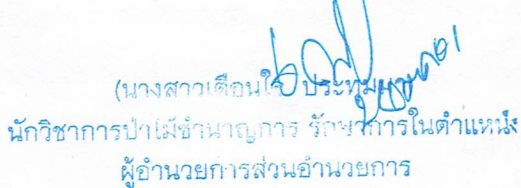 (นางสาวเตือนใจ ประทุม
นักวิชาการป่าไม้ชำนาญการ รักษาการในตำแหน่ง
ผู้อำนวยการส่วนอำนวยการ